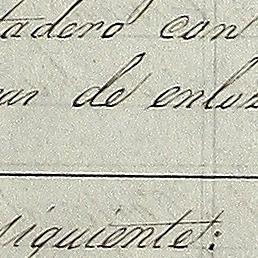 tadero con
ar de enloz
siguiente: